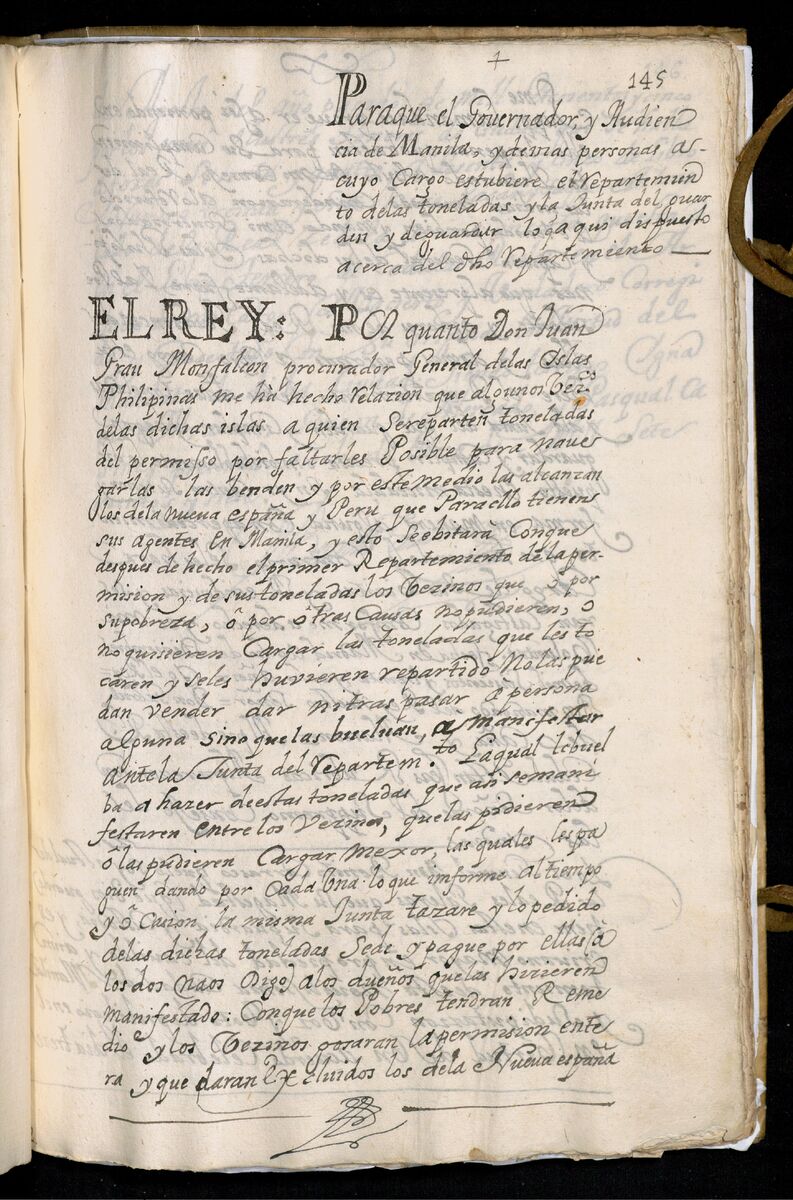 +
145
Paraque el Governador, y Audien
cia de Manila, y demas personas as-
cuyo Cargo estubiere el repartimien
to delas toneladas y la Junta del guar
den y deguardar loq̃ a qui dispuesto
acerca del dho repartemiento —
EL REY: POR quanto Don Juan
Grau Monfalcon procurador General delas Islas
Philipinas me hà hecho relazion que algunos Vezos
delas dichas islas a quien Sereparten toneladas
del permisso por faltarles Posible para nave
garlas las benden y por este medio las alcanzan
los dela nueva españa y Peru que Paraello tienen
sus agentes en Manila, y esto Seebitarà Conque
despues de hecho el primer Repartemiento de la per-
mision y de sus toneladas los Vezinos que ô por
supobreza, ô por ôtras Causas nopudieren, o
no quisieren Cargar las toneladas que les to
caren y seles huvieren repartido Nolas pue
dan vender dar nitras pasar â persona
alguna sino quelas buelvan, a manifestar
antela Junta del repartem.to Laqual lebuel
ba a hazer deestas toneladas que asi semani
festaren entre los Vezinos, quelas pidieren
ô las pudieren Cargar Mexor, las quales lespa
guen dando por Cada Vna lo que imforme al tiempo
y ôCasion la misma Junta tazare y lopedido
delas dichas toneladas Sede y pague por ellas (â
los dos naos Digo) alos dueños quelas hizieren
manifestado: Conque los Pobres tendran Reme
dio y los Vezinos gosaran la permision ente
ra y que daran Excluidos los dela Nueva españa